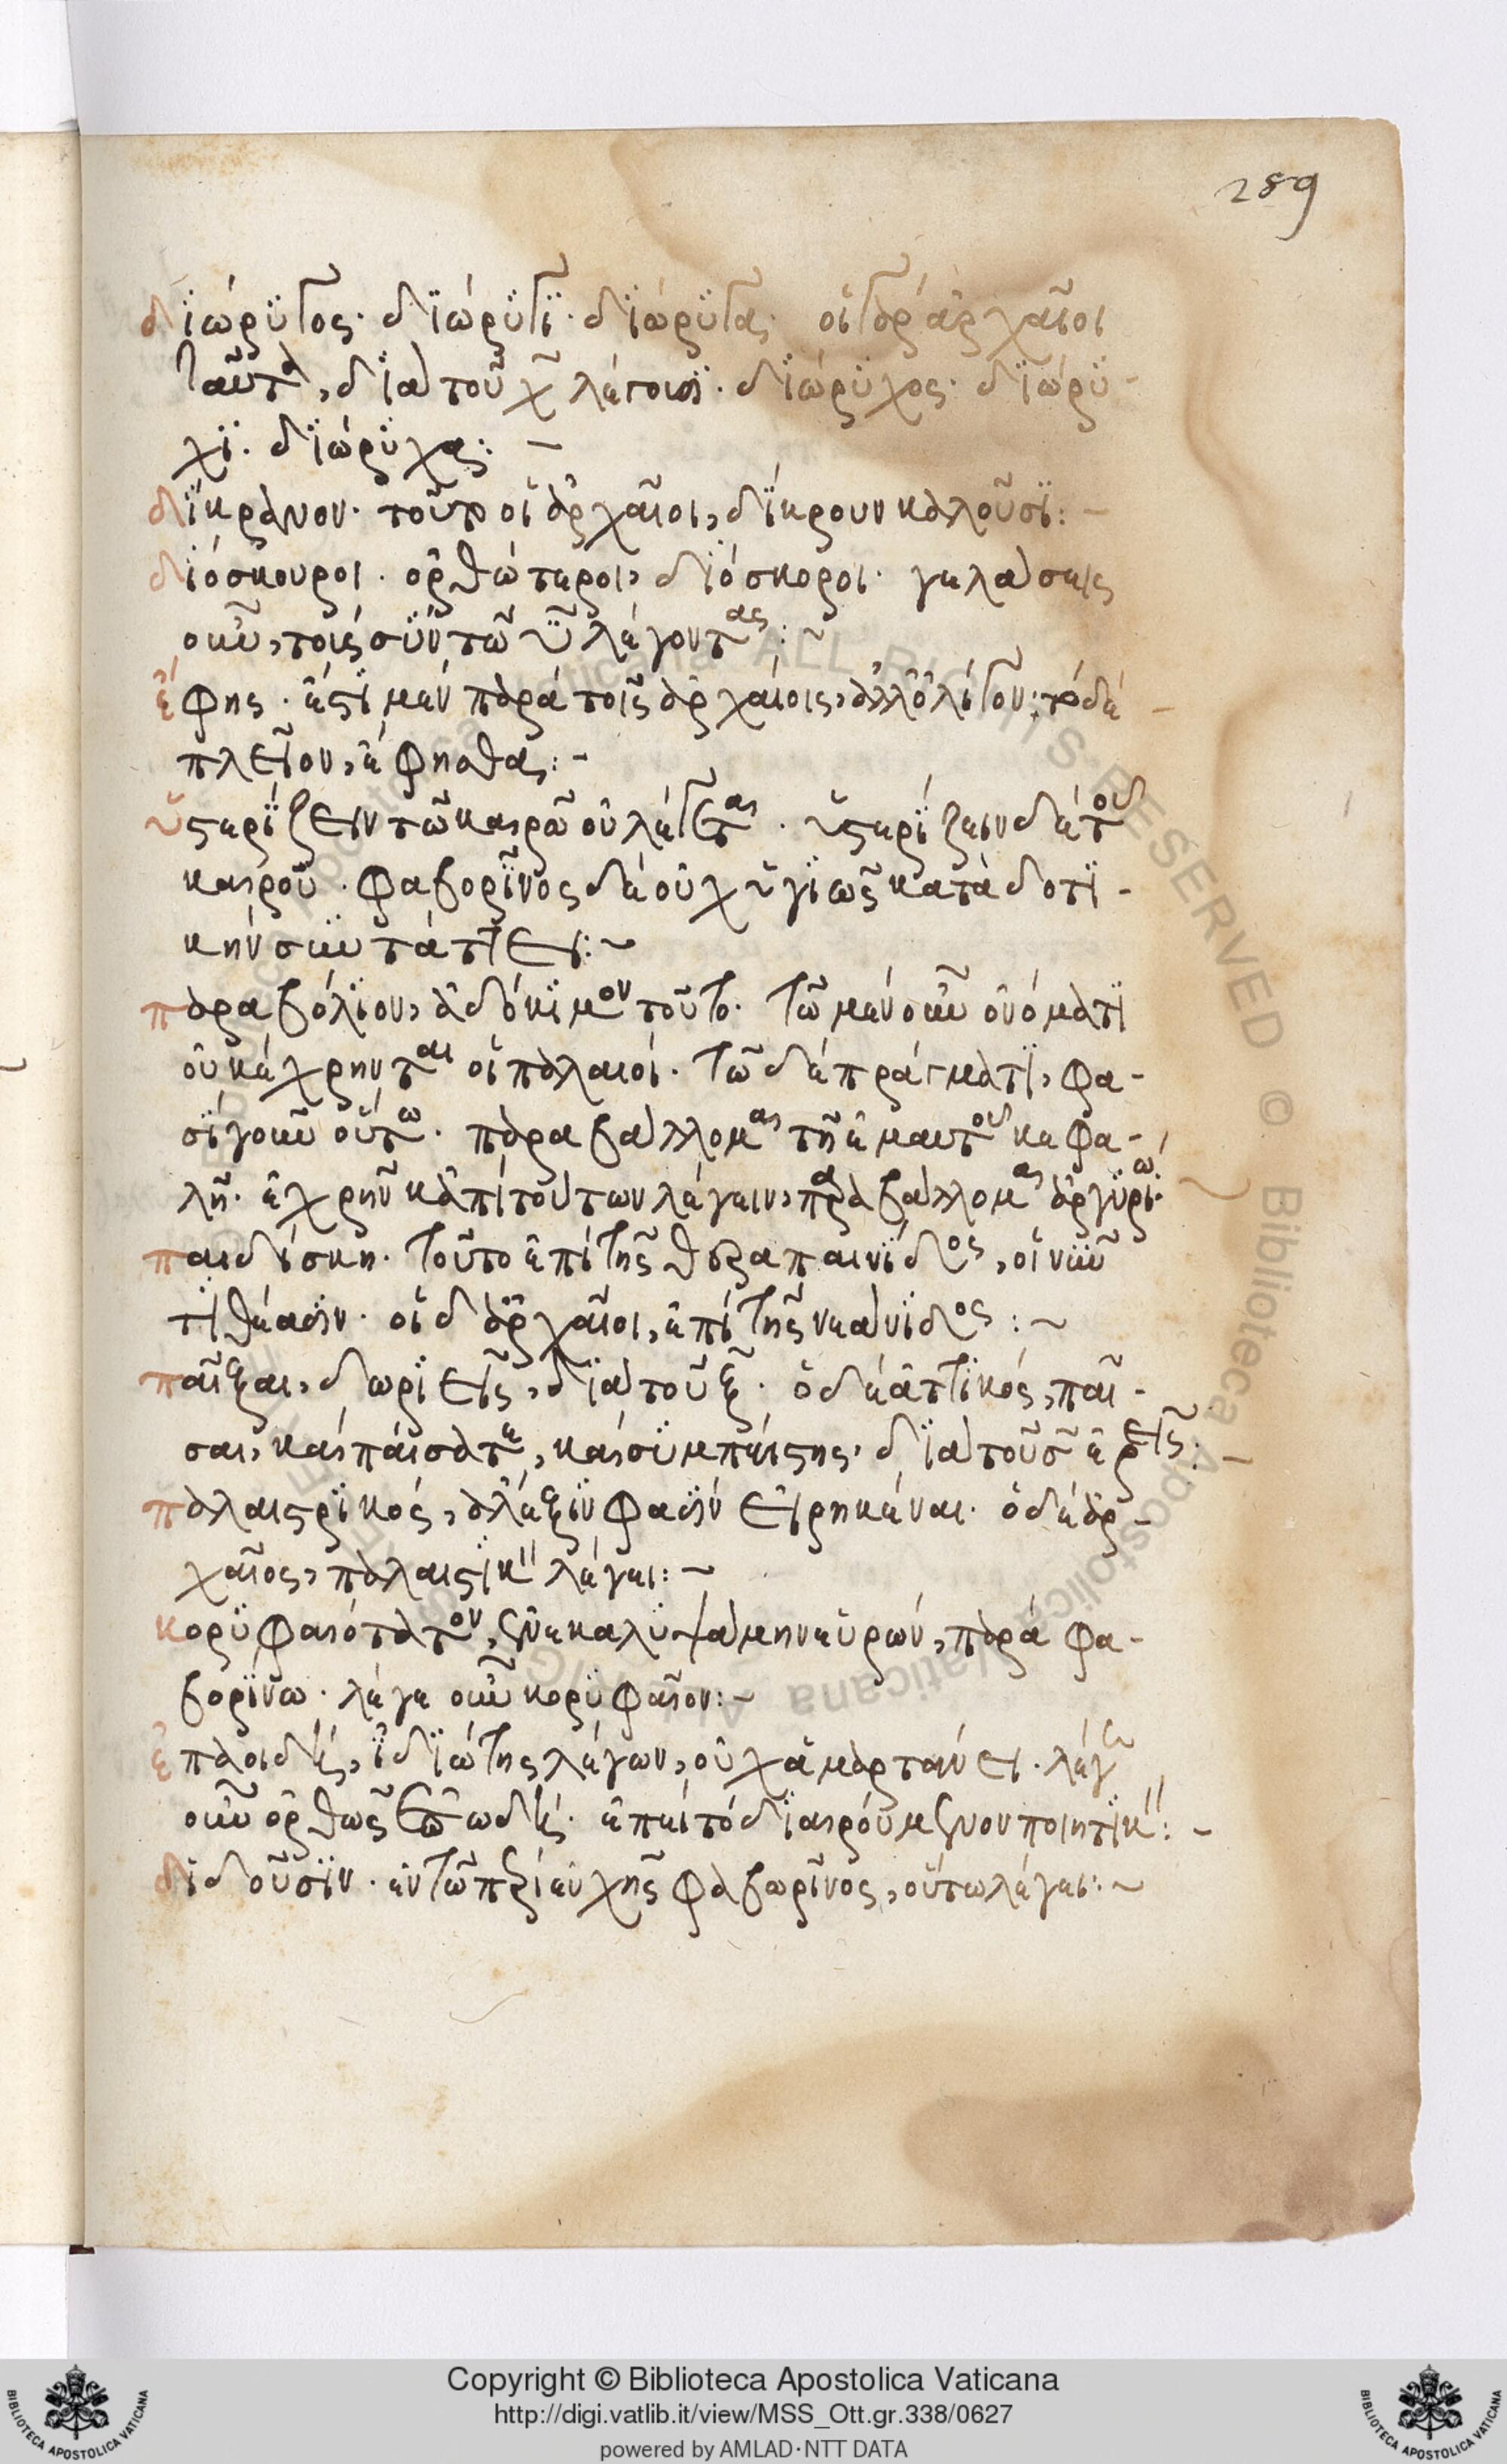 289
διώρυγος· διώρυγι· διώρυγα· οἱ γὰρ ἀρχαῖοι
ταῦτα, διὰ τοῦ χ̄ λέγουσι· διώρυχος· διώρυ-
χι· διώρυχα:
δίκρανον· τοῦτο οἱ ἀρχαῖοι, δίκρουν καλοῦσι:
διόσκουροι· ὀρθότεροι, διόσκοροι· γελάσεις
οὖν, τοὺς σὺν τῶ ῡ λέγοντας:
ἔφης· ἔστι μὲν παρὰ τοῖς ἀρχαίοις, ἀλλ' ὀλίγον· τὸ δὲ
πλεῖον, ἔφησθας:
ὑστερίζειν τῶ καιρῶ οὐ λέγεται· ὑστερίζειν δὲ τοῦ
καιροῦ· φαβορῖνος δὲ οὐχ ὑγιῶς κατὰ δοτι-
κὴν συντάττει:
παραβόλιον, ἀδόκιμον τοῦτο· τῶ μὲν οὖν ὀνόματι
οὐ κέχρηνται οἱ παλαιοί· τῶ δὲ πράγματι, φα-
σὶ γοῦν οὕτω· παραβάλλομαι τῆ ἐμαυτοῦ κεφα-
λῆ· ἐχρῆν κἀπὶ τούτων λέγειν, παραβάλλομαι ἀργυρίω·
παιδίσκη· τοῦτο ἐπὶ τῆς θεραπαινίδος, οἱ νῦν
τιθέασιν· οἱ δ' ἀρχαῖοι, ἐπὶ τῆς νεάνιδος:
παῖξαι, δωριεῖς, διὰ τοῦ ξ̄· ὁ δὲ ἀττικός, παῖ-
σαι, καὶ παίσατε, καὶ συμπέστης· διὰ τοῦ σ̄ ἐρεῖς:
παλαιστρικός, ἄλεξιν φασὶν εἰρηκέναι· ὁ δὲ ἀρ-
χαῖος, παλαιστικὸν λέγει:
κορυφαιότατον, ἐνεκαλυψάμην εὑρών, παρὰ φα-
βορίνω· λέγε οὖν κορυφαῖον:
ἐπαοιδή, ἰδιώτης λέγων, οὐχ ἁμαρτάνει· λέγε
οὖν ὀρθῶς ἐπωδή· ἐπεὶ τὸ διαιρούμενον ποιητικόν:
διδοῦσιν· ἐν τῶ περὶ εὐχῆς φαβωρῖνος, οὕτω λέγει:
Copyright © Biblioteca Apostolica Vaticana
http://digi.vatlib.it/view/MSS_Ott.gr.338/0627
powered by AMLAD·NTT DATA